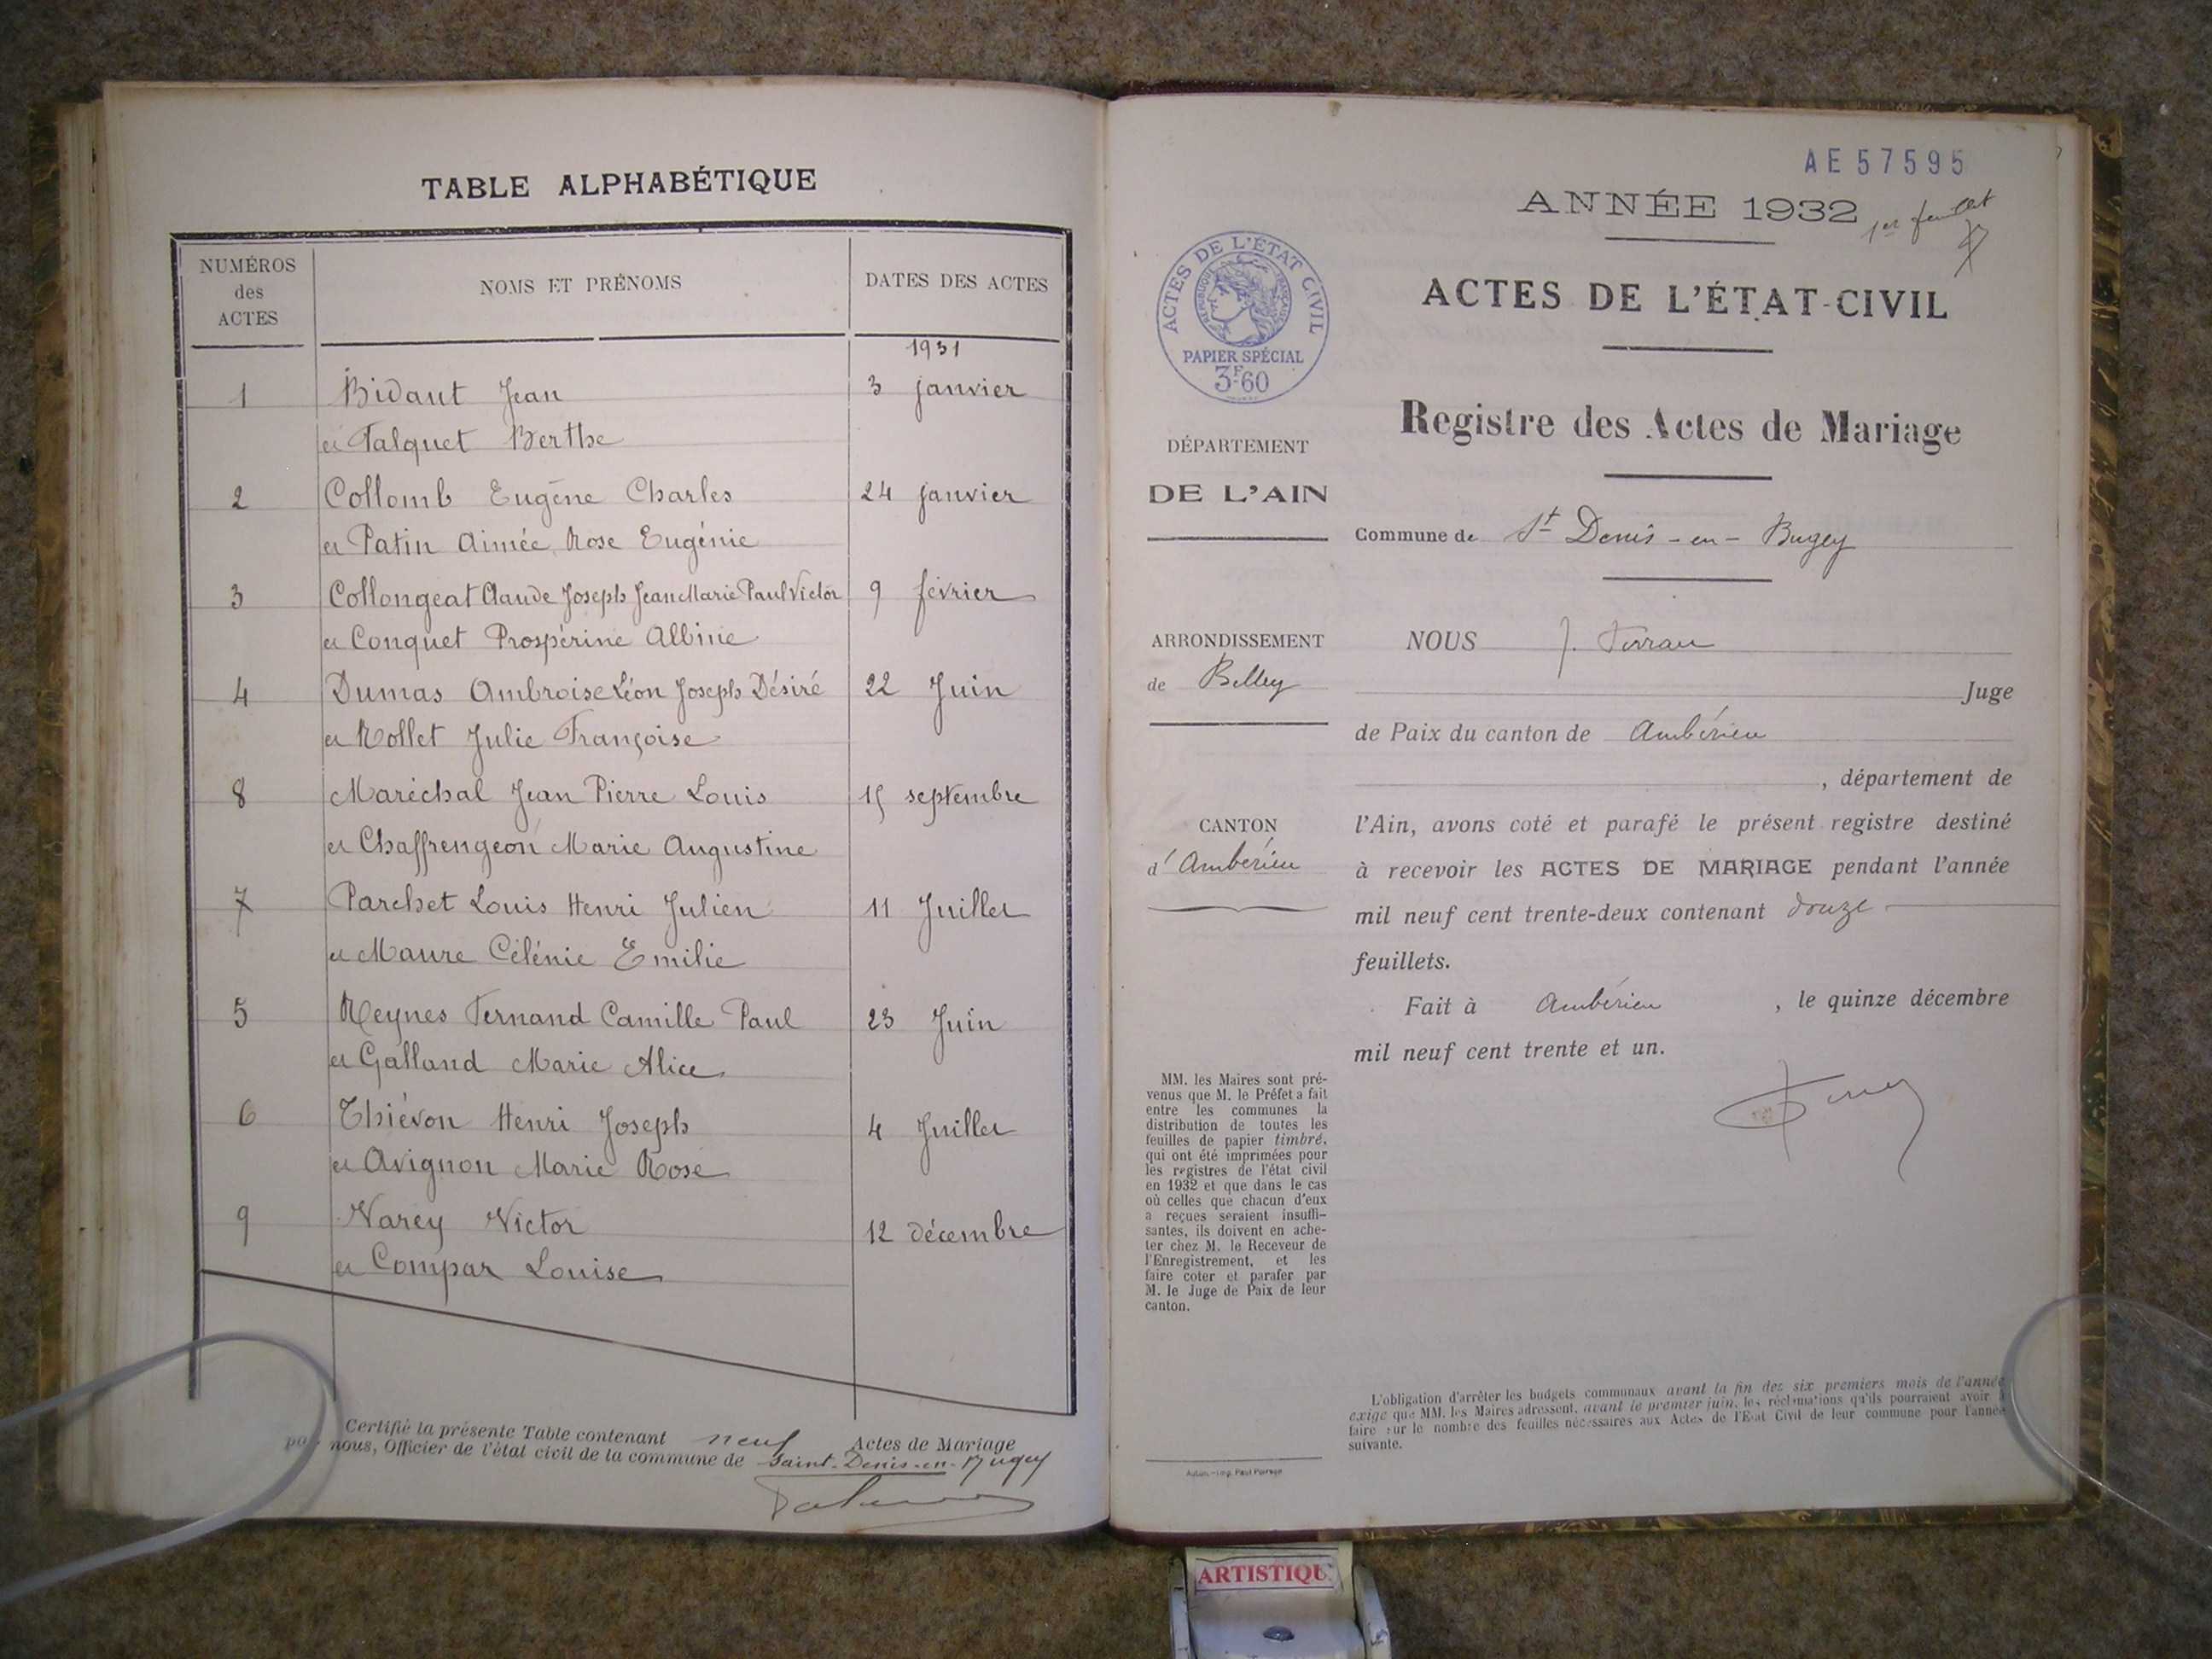 TABLE ALPHABÉTIQUE
NUMÉROS
des
ACTES
NOMS ET PRÉNOMS
DATES DES ACTES
1931
1 Bidaut Jean 3 janvier
et Falquet Berthe
2 Collomb Eugène Charles 24 janvier
et Patin Aimée Rose Eugénie
3 Collongeat Claude Joseph Jean Marie Paul Victor 9 février
et Conquet Prospérine Albine
4 Dumas Ambroise Léon Joseph Désiré 22 Juin
et Rollet Julie Françoise
8 Maréchal Jean Pierre Louis 15 septembre
et Chaffrengeon Marie Augustine
7 Parchet Louis Henri Julien 11 Juillet
et Maure Célénie Emilie
5 Reynes Fernand Camille Paul 23 Juin
et Galland Marie Alice
6 Thiévon Henri Joseph 4 Juillet
et Avignon Marie Rose
9 Varey Victor 12 décembre
et Compar Louise
Certifié la présente Table contenant neuf Actes de Mariage
par nous, Officier de l'état civil de la commune de Saint-Denis-en-Bugey
AE 57595
ANNÉE 1932
1er feuillet
ACTES DE L'ÉTAT CIVIL
RÉPUBLIQUE FRANÇAISE
PAPIER SPÉCIAL
3F60
ACTES DE L'ÉTAT-CIVIL
Registre des Actes de Mariage
DÉPARTEMENT
DE L'AIN
Commune de St Denis-en-Bugey
ARRONDISSEMENT
de Belley
CANTON
d'Ambérieu
NOUS J. Ferran
Juge
de Paix du canton de Ambérieu
, département de
l'Ain, avons coté et parafé le présent registre destiné
à recevoir les ACTES DE MARIAGE pendant l'année
mil neuf cent trente-deux contenant douze
feuillets.
Fait à Ambérieu , le quinze décembre
mil neuf cent trente et un.
MM. les Maires sont pré-
venus que M. le Préfet a fait
entre les communes la
distribution de toutes les
feuilles de papier timbré,
qui ont été imprimées pour
les registres de l'état civil
en 1932 et que dans le cas
où celles que chacun d'eux
a reçues seraient insuffi-
santes, ils doivent en ache-
ter chez M. le Receveur de
l'Enregistrement, et les
faire coter et parafer par
M. le Juge de Paix de leur
canton.
L'obligation d'arrêter les budgets communaux avant la fin des six premiers mois de l'année
exige que MM. les Maires adressent, avant le premier juin, les réclamations qu'ils pourraient avoir à
faire sur le nombre des feuilles nécessaires aux Actes de l'Etat Civil de leur commune pour l'année
suivante.
Autun. - Imp. Paul Parraye
ARTISTIQU